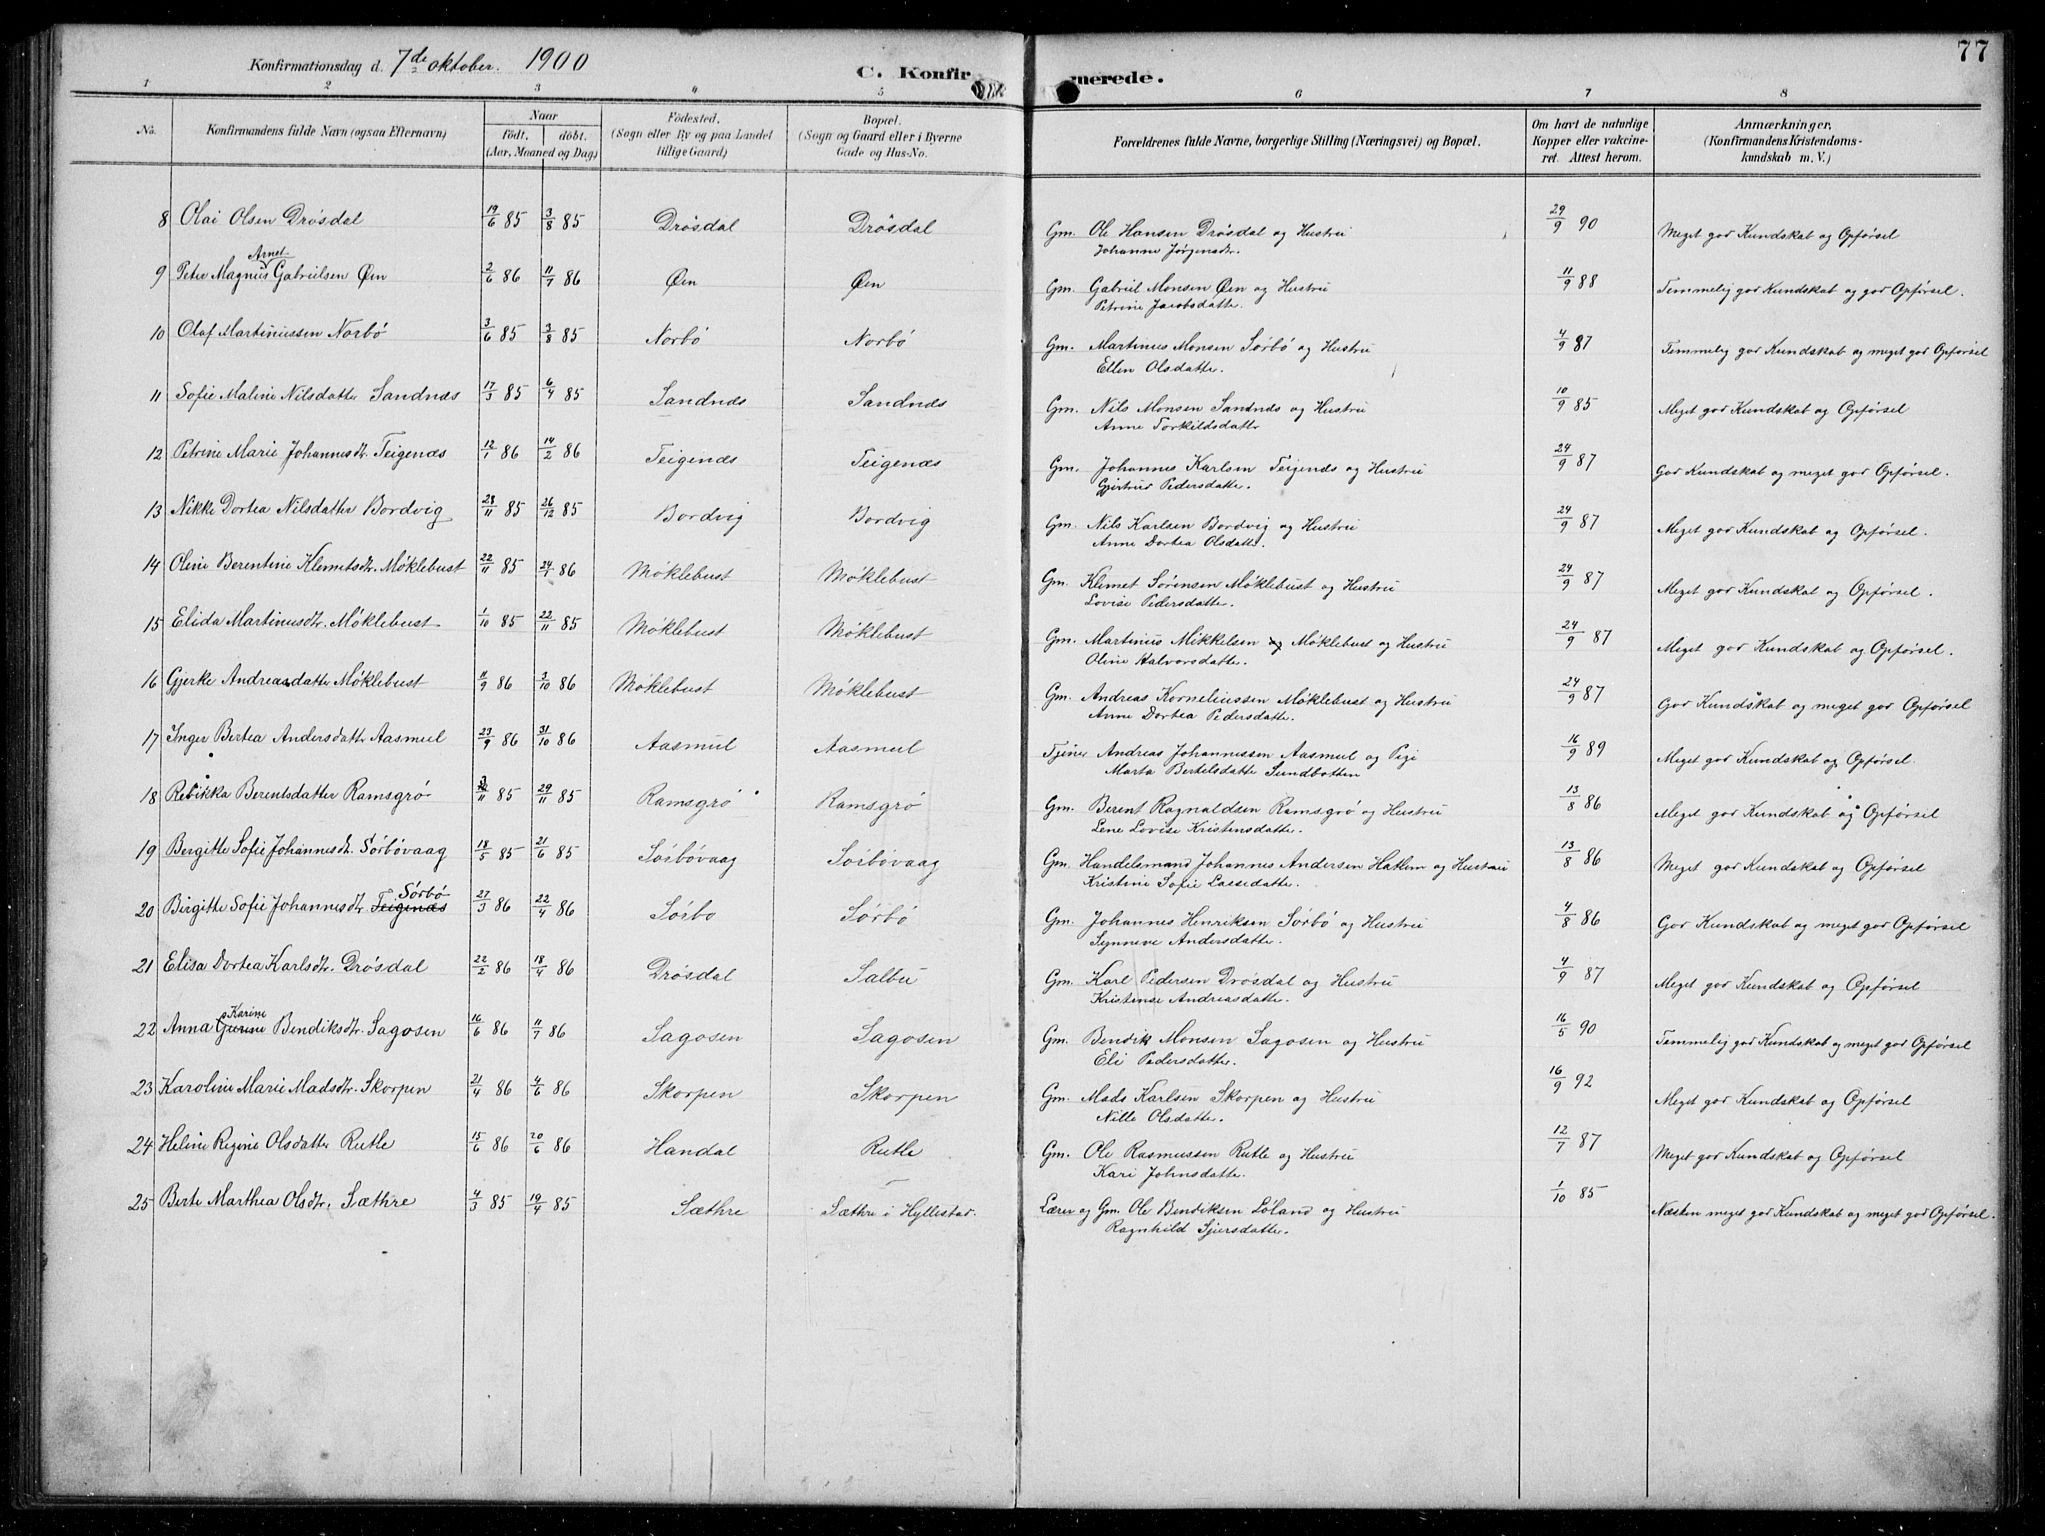 77
Konfirmationsdag d. 7de oktober. 1900
C. Konfir merede.
1 2 3 4 5 6 7 8
No. Konfirmandens fulde Navn (ogsaa Efternavn) Naar födt. döbt. (Aar, Maaned og Dag) Födested. (Sogn eller By og paa Landet tillige Gaard) Bopæl. (Sogn og Gaard eller i Byerne Gade og Hus-No. Forældrenes fulde Navne, borgerlige Stilling (Næringsvei) og Bopæl. Om havt de naturlige Kopper eller vakcineret. Attest herom. Anmærkninger. (Konfirmandens Kristendomskundskab m. V.)
8 Olai Olsen Drösdal 19/6 85 3/8 85 Drösdal Drösdal Gm. Ole Hansen Drösdal og Hustru 29/9 90 Meget god Kundskab og Opførsel
Johanne Jørgensdtr.
Arnet
9 Peter Magnus Gabrielsen Øen 2/6 86 11/7 86 Øen Øen Gm. Gabriel Monsen Øen og Hustru 11/9 88 Temmelig god Kundskab og god Opførsel.
Petrine Jacobsdatter.
10 Olaf Martinussen Norbö 3/6 85 3/8 85 Norbö Norbö Gm. Martinus Monsen Sörbö og Hustru 4/9 87 Temmelig god Kundskab og meget god Opførsel
Ellen Olsdatter.
11 Sofie Malene Nilsdatter Sandnæs 17/3 85 6/4 85 Sandnæs Sandnæs Gm. Nils Monsen Sandnæs og Hustru 10/9 85 Meget god Kundskab og Opførsel
Anne Torkildsdattr
12 Petrine Marie Johannesdtr. Teigenæs 12/1 86 14/2 86 Teigenæs Teigenæs Gm. Johannes Karlsen Teigenæs og Hustru 24/9 87 God Kundskab og meget god Opførsel.
Gjertrud Pedersdatter.
13 Nikke Dortea Nilsdatter Bordvig 28/11 85 26/12 85 Bordvig Bordvig Gm. Nils Karlsen Bordvig og Hustru 24/9 87 Meget god Kundskab og Opførsel.
Anne Dortea Olsdatter.
14 Oline Berentine Klemetsdtr. Möklebust 22/11 85 24/1 86 Möklebust Möklebust Gm. Klemet Sørensen Möklebust og Hustru 24/9 87 Meget god Kundskab og Opførsel.
Lovise Pedersdatter.
15 Elida Martinusdtr. Möklebust 1/10 85 22/11 85 Möklebust Möklebust Gm. Martinus Mikkelsen og Möklebust og Hustru 24/9 87 Meget god Kundskab og Opførsel.
Oline Halvorsdatter.
16 Gjerke Andreasdatter Möklebust 11/9 86 3/10 86 Möklebust Möklebust Gm. Andreas Korneliussen Möklebust og Hustru 24/9 87 God Kundskab og meget god Opførsel
Anne Dortea Pedersdatter.
17 Inger Bertea Andersdatter Aasmul 23/9 86 31/10 86 Aasmul Aasmul Tjener Andreas Johannessen Aasmul og Pige 16/9 89 Meget god Kundskab og Opførsel.
Marta Bertelsdatter Sundbotten
18 Rebikka Berentsdatter Ramsgrö 3/11 85 29/11 85 Ramsgrö Ramsgrö Gm. Berent Ragnaldsen Ramsgrö og Hustru 13/8 86 Meget god Kundskab og Opførsel
Lene Lovise Kristensdatter.
19 Bergitte Sofie Johannesdt. Sörbövaag 18/5 85 21/6 85 Sörbövaag Sörbövaag Gm. Handelsmand Johannes Andersen Hatlem og Hustru 13/8 86 Meget god Kundskab og Opførsel
Kristine Sofie Lassedatter.
Sörbö
20 Birgitte Sofie Johannesdtr Teigenæs 27/3 86 22/4 86 Sörbo Sörbö Gm. Johannes Henriksen Sörbö og Hustru 4/8 86 God Kundskab og meget god Opførsel
Synneve Andersdatter.
21 Elisa Dortea Karlsdtr. Drösdal 22/2 86 18/4 86 Drösdal Salbu Gm. Karl Pedersen Drösdal og Hustru 4/9 87 Meget god Kundskab og Opførsel
Kristense Andreasdatter.
Karine
22 Anna Bendiksdtr. Sagosen 16/6 86 11/7 86 Sagosen Sagosen Gm. Bendik Monsen Sagosen og Hustru 16/5 90 Temmelig god Kundskab og meget god Opførsel
Eli Pedersdatter.
23 Karoline Marie Madsdtr. Skorpen 21/4 86 4/6 86 Skorpen Skorpen Gm. Mads Karlsen Skorpen og Hustru 16/9 92 Meget god Kundskab og Opførsel
Nille Olsdatter.
24 Heline Regine Olsdatter Rutle 15/6 86 20/6 86 Handal Rutle Gm. Ole Rasmussen Rutle og Hustru 12/7 87 Meget god Kundskab og Opførsel
Kari Johnsdatter.
25 Berte Marthea Olsdtr. Sæthre 4/3 85 19/4 85 Sæthre Sæthre i Hyllestad. Lærer og Gm. Ole Bendiksen Löland og Hustru 1/10 85 Næsten meget god Kundskab og meget god Opførsel.
Ragnhild Sjursdatter.